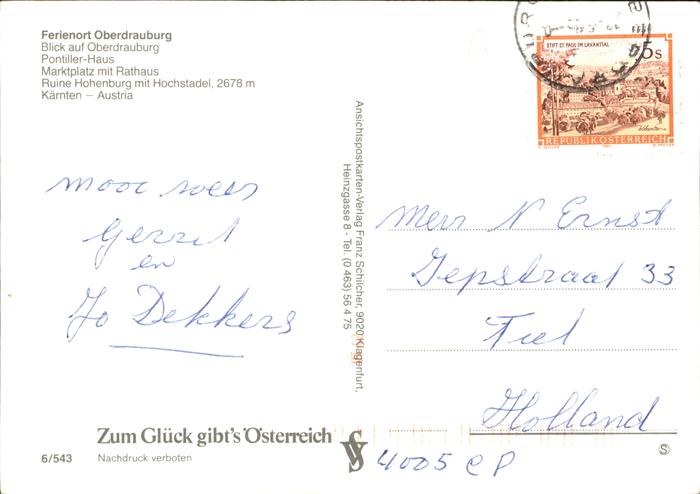 Ferienort Oberdrauburg
Blick auf Oberdrauburg
Pontiller-Haus
Marktplatz mit Rathaus
Ruine Hohenburg mit Hochstadel, 2678 m
Kärnten – Austria
mooi weer
Gerrit
en
Jo Dekkers
Zum Glück gibt's Österreich
6/543
Nachdruck verboten
Ansichtspostkarten-Verlag Franz Schilcher, 9020 Klagenfurt,
Heinzgasse 8 - Tel. (0 463) 56 4 75
STIFT ST. PAUL IM LAVANTTAL
5 S
REPUBLIK ÖSTERREICH
N Ernst
Iepstraat 33
Tiel
Holland
4005 CP
S